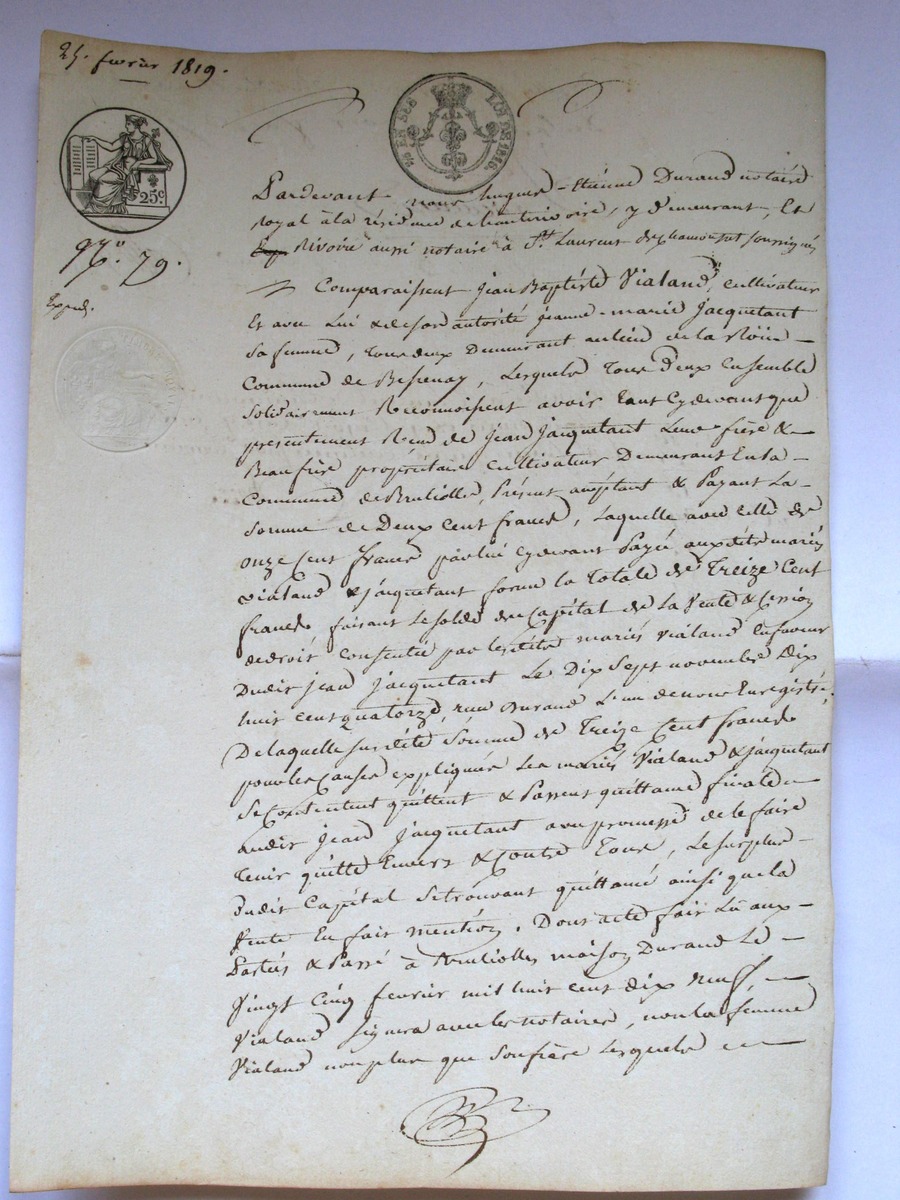 25. fevrier 1819.
25c.
LOI DE 1816.
N°. 79.
Exped.
Pardevant nous hugues-Etienne Durand notaire
royal à la résidence de chanterivoire, y demeurant, Et
Rivoire aussi notaire à St. Laurent de chamousset soussignés
Comparaissent jean Baptiste Vialand, cultivateur
Et avec Lui & de son autorité jeanne-marie jacquetant
sa femme, tous deux Demeurant au lieu de la
Commune de Bessenay, Lesquels Tous deux Ensemble
solidairement Reconnoissent avoir tant cydevant que
presentement Recu de jean jacquetant Leur frère &
Beaufrère propriétaire cultivateur Demeurant En la
Commune de Brulioles, Présent acceptant & Payant La
somme de Deux cent francs, Laquelle avec celle de
onze cent francs par lui cydevant Payée auxdits mariés
vialand & jacquetant forme la totale de Treize Cent
francs faisant le solde du Capital de La Vente & Cession
de droit consentie par lesdits mariés vialand En faveur
Dudit jean jacquetant Le Dix sept novembre Dix
huit cent quatorze, recu Durand L'un de nous Enregistré.
De laquelle susdite somme de Treize Cent francs
pour les causes expliquées Les mariés Vialand & jacquetant
se contentent quittent & Passent quittance finale
audit jean jacquetant avec promesse de le faire
tenir quitte Envers & Contre Tous, Le surplus
dudit Capital se trouvant quittancé ainsi que la
Vente En fait mention. Dont acte fait Lu aux
Parties & Passé à Brulioles maison Durand Le
Vingt cinq fevrier mil huit cent dix neuf,
Vialand signera avec les notaires, non la femme
Vialand non plus que son frère Lesquels